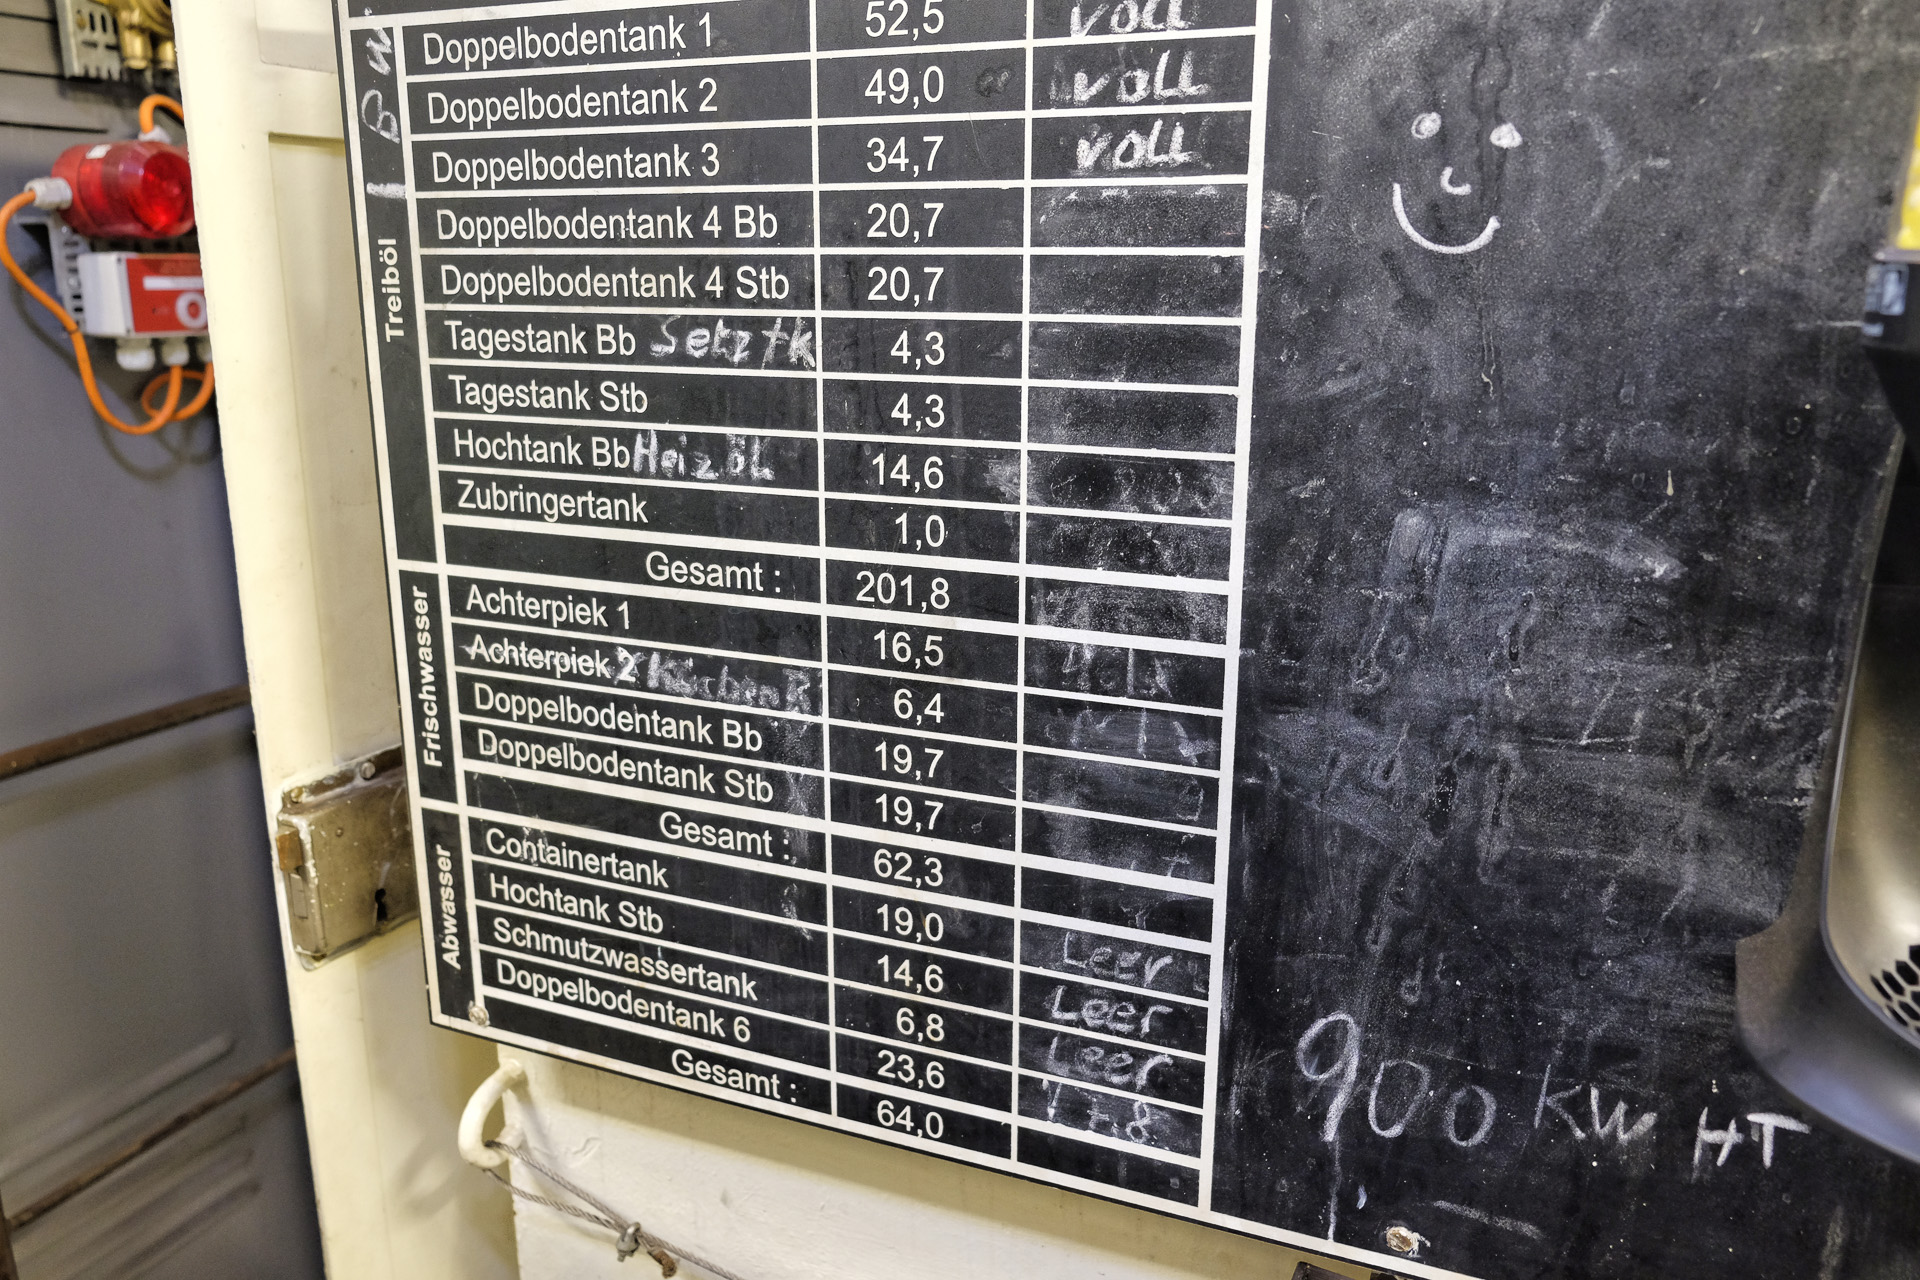 Doppelbodentank 1 52,5 voll
Doppelbodentank 2 49,0 voll
Doppelbodentank 3 34,7 voll
Doppelbodentank 4 Bb 20,7
Doppelbodentank 4 Stb 20,7
Tagestank Bb Setztk 4,3
Tagestank Stb 4,3
Hochtank Bb Heizöl 14,6
Zubringertank 1,0
Gesamt : 201,8
Treiböl
Achterpiek 1 16,5
Achterpiek 2 6,4
Doppelbodentank Bb 19,7
Doppelbodentank Stb 19,7
Gesamt : 62,3
Frischwasser
Containertank 19,0 Leer
Hochtank Stb 14,6 Leer
Schmutzwassertank 6,8 Leer
Doppelbodentank 6 23,6
Gesamt : 64,0
Abwasser
900 KW HT